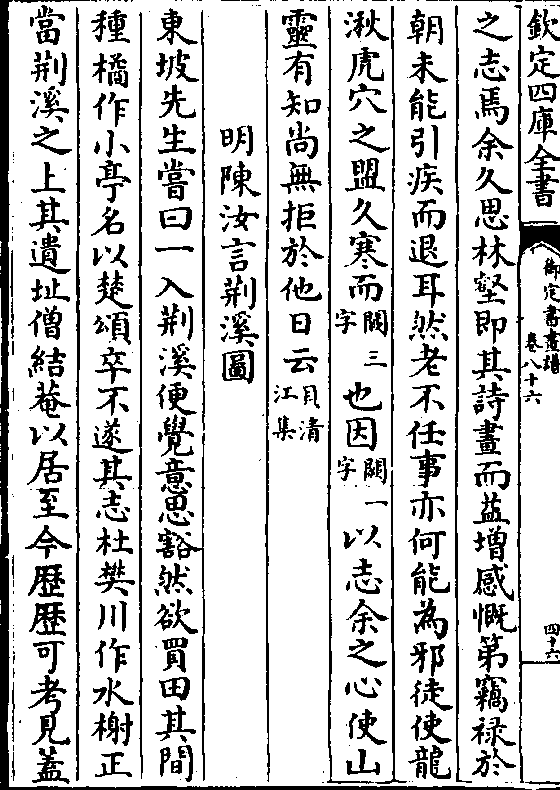 欽定四庫全書
御定書畫譜
卷八十六
四十六
之志焉余久思林壑即其詩畫而益增感慨第竊祿於
朝未能引疾而退耳然老不任事亦何能為邪徒使龍
湫虎穴之盟久寒而闕三字也因闕一字以志余之心使山
靈有知尚無拒於他日云貝清江集
明陳汝言荆溪圖
東坡先生嘗曰一入荆溪便覺意思豁然欲買田其間
種橘作小亭名以楚頌卒不遂其志杜樊川作水榭正
當荆溪之上其遺址僧結菴以居至今歴歴可考見蓋